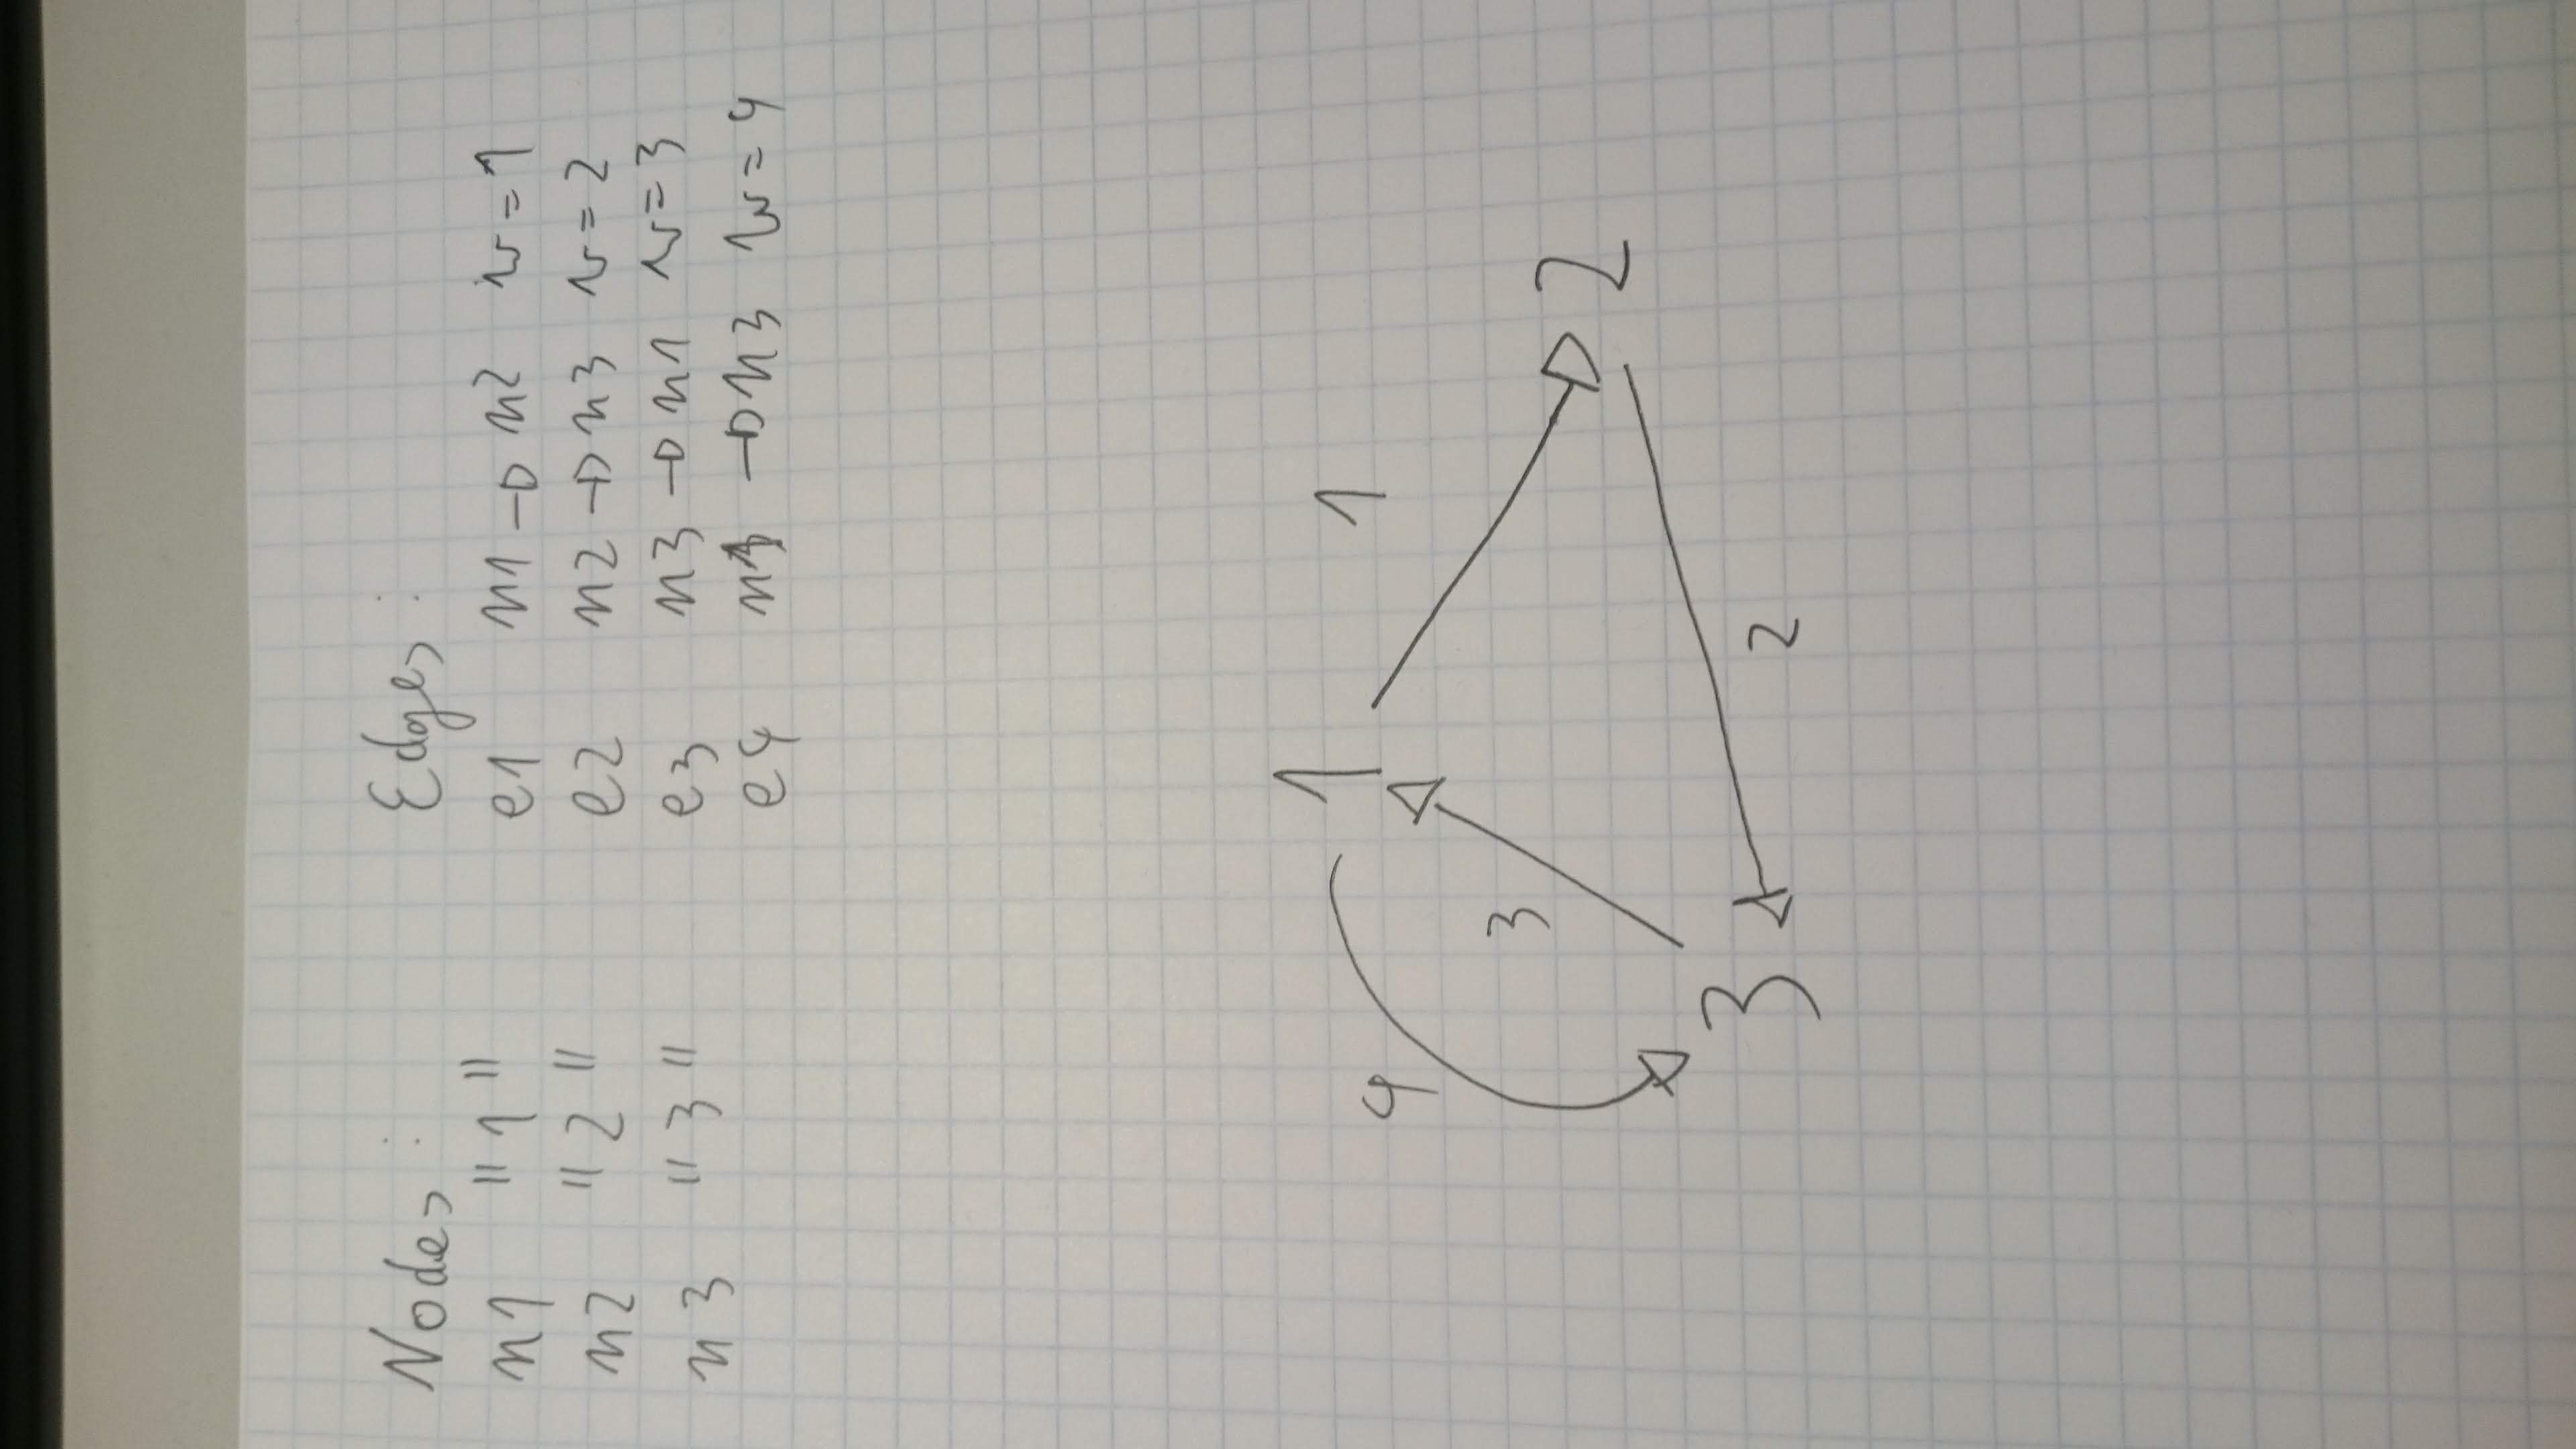 Nodes :
n1 "1"
n2 "2"
n3 "3"
Edges :
e1 n1 → n2 w = 1
e2 n2 → n3 w = 2
e3 n3 → n1 w = 3
e4 n1 → n3 w = 4
1
1
4
3
2
3
2